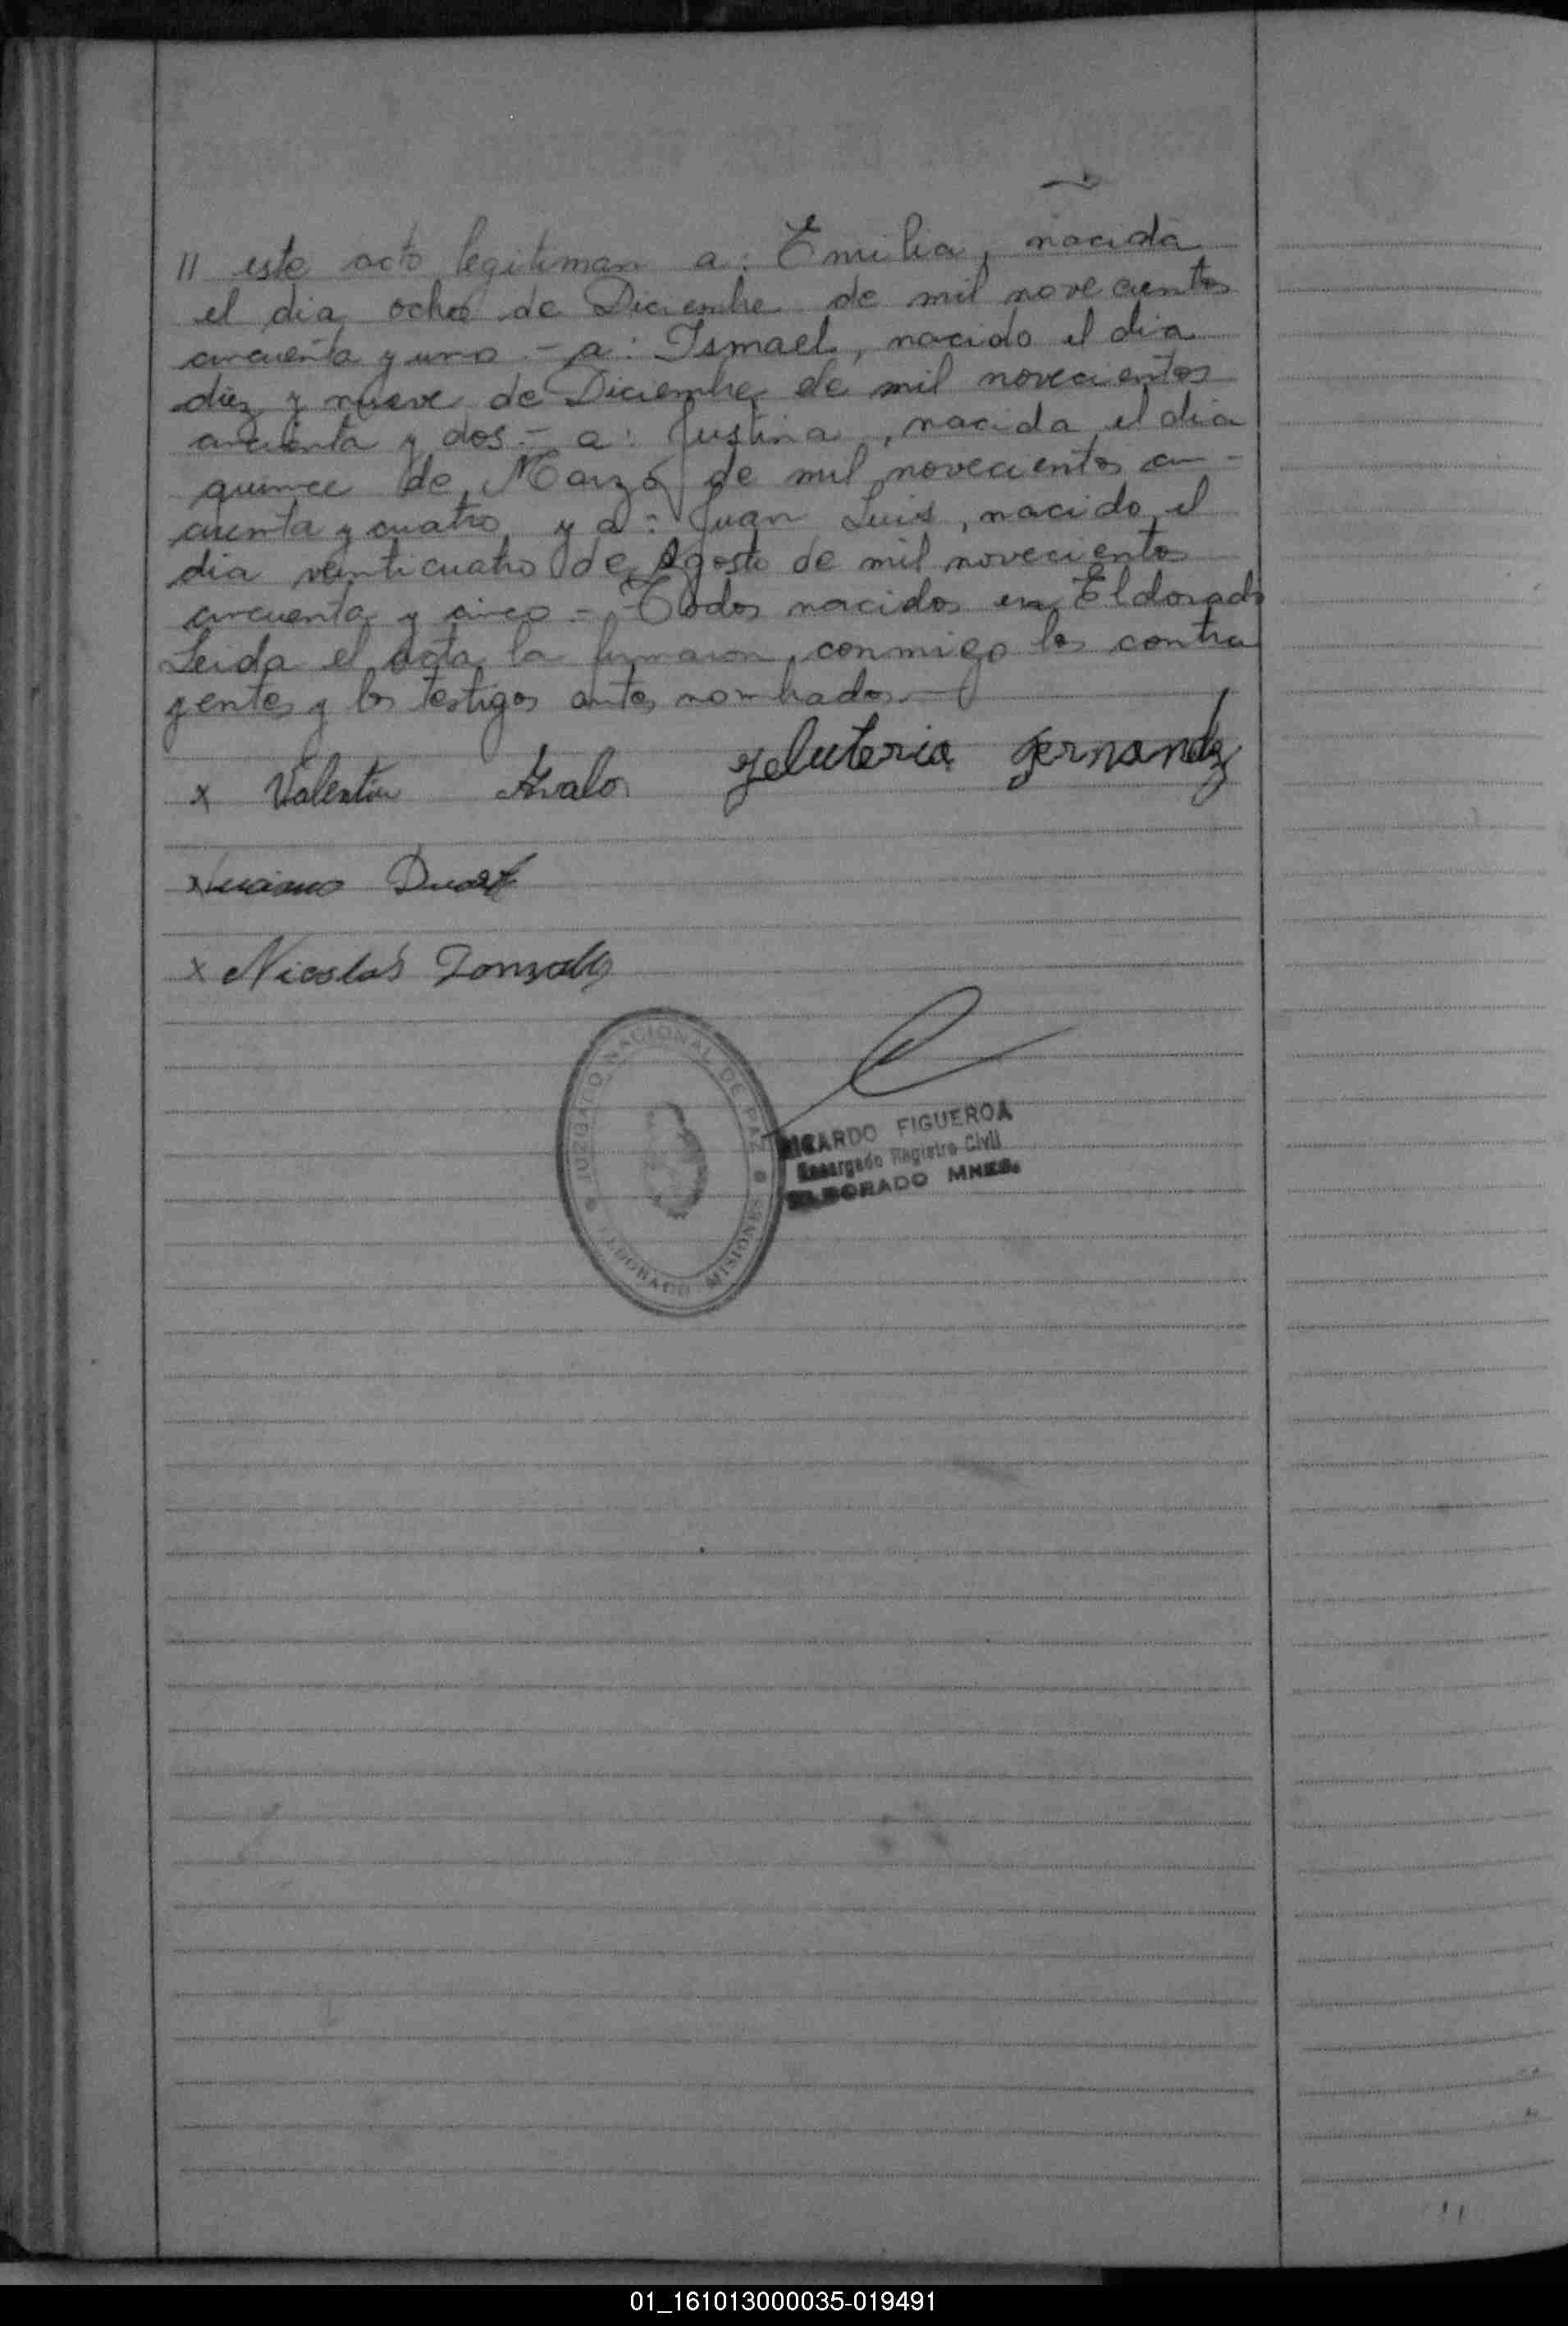 11 este acto legitiman a: Emilia, nacida
el dia ocho de Diciembre de mil novecientos
cincuenta y uno.- a: Ismael, nacido el dia
diez y nueve de Diciembre de mil novecientos
cincuenta y dos.- a: Justina, nacida el dia
quince de Marzo de mil novecientos cin-
cuenta y cuatro y a: Juan Luis, nacido el
dia veinticuatro de Agosto de mil novecientos
cincuenta y cinco.- Todos nacidos en Eldorado
Leida el acta la firmaron, conmigo los contra
yentes y los testigos antes nombrados.-
x Valentin Avalo Yeluteria Fernandez
x Luciano Duarte
x Nicolás Gonzalez
JUZGADO NACIONAL DE PAZ
ELDORADO MISIONES
RICARDO FIGUEROA
Encargado Registro Civil
ELDORADO MNES.
01_161013000035-019491